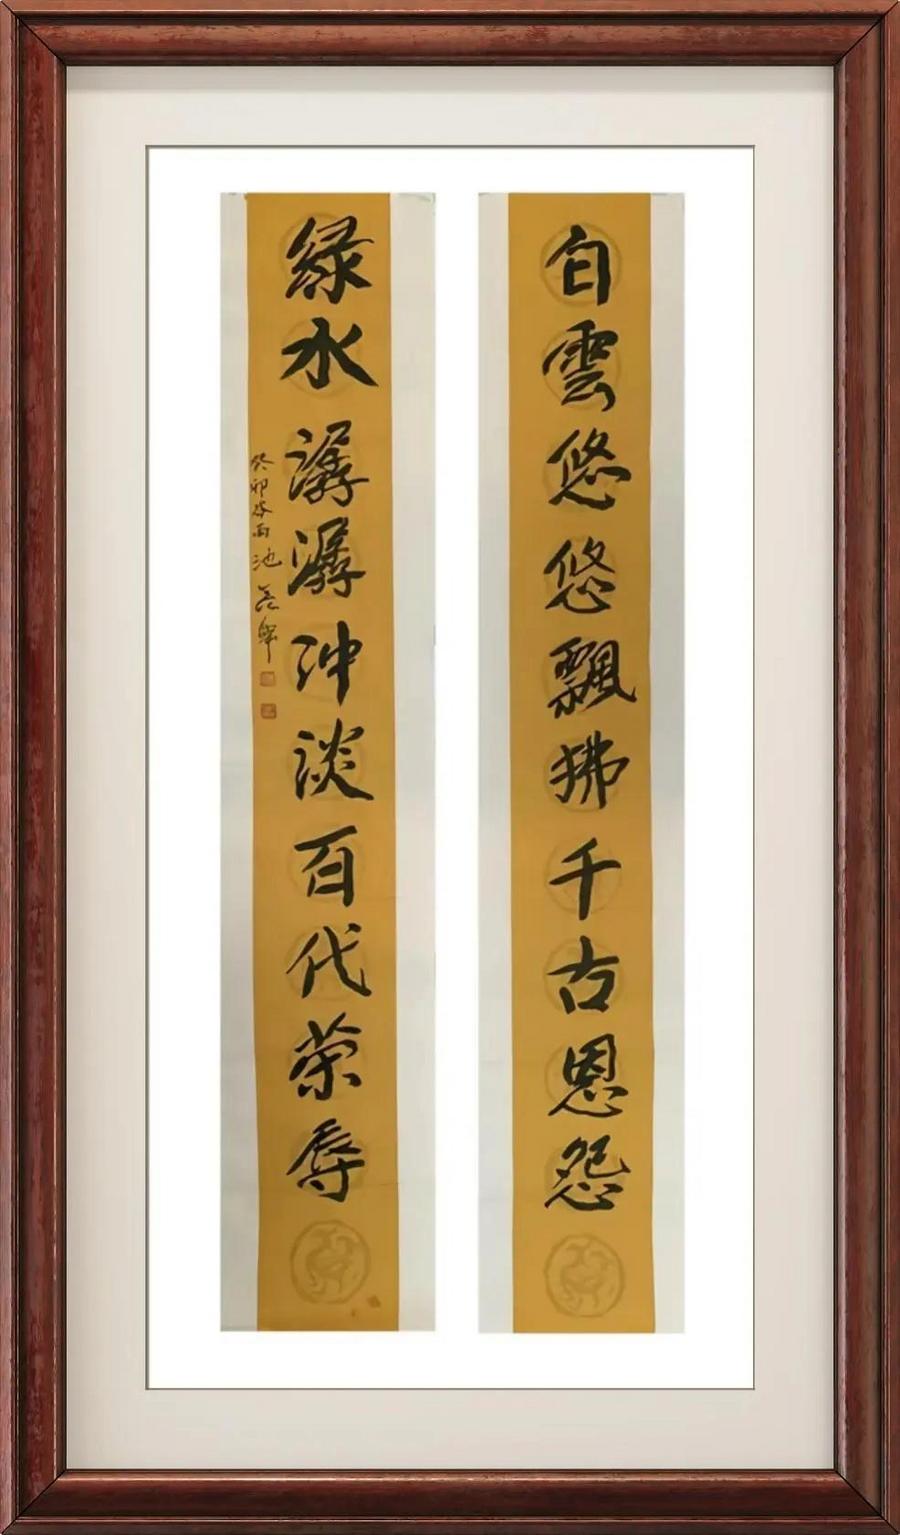 白雲悠悠飄拂千古恩怨
緑水潺潺冲淡百代荣辱
癸卯谷雨池